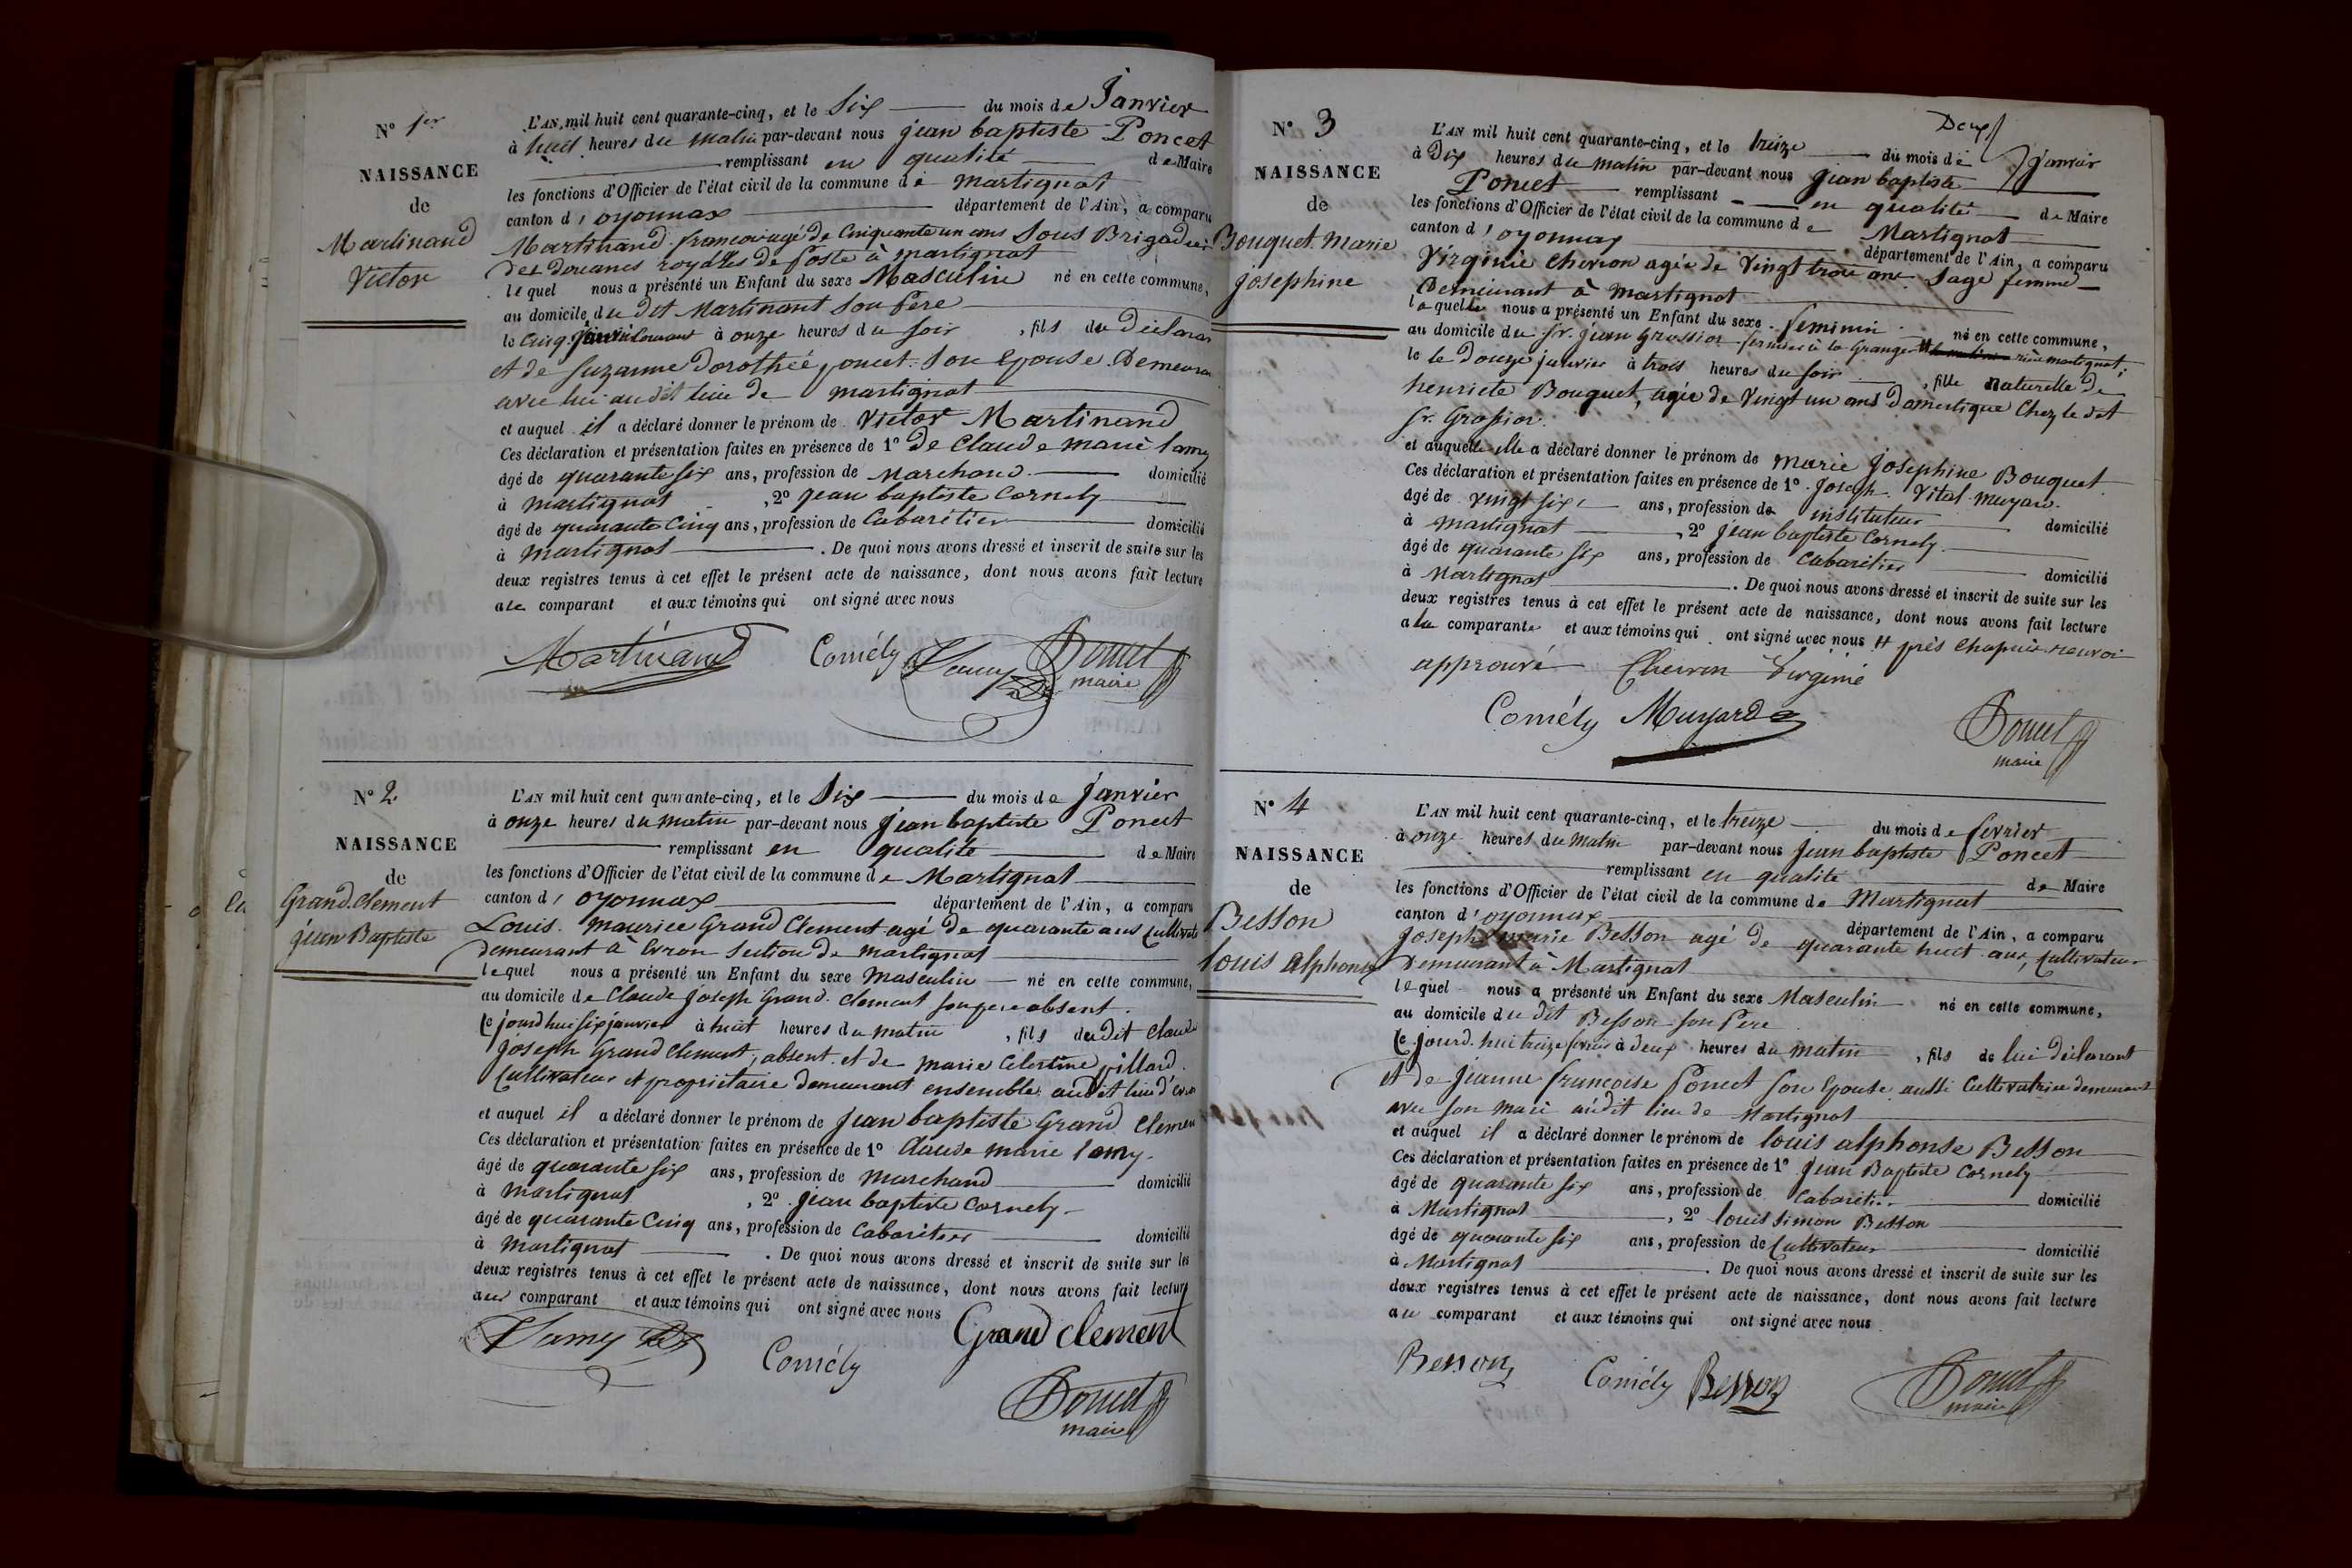 N° 1er
NAISSANCE
de
Martinand
Victor
L'AN mil huit cent quarante-cinq, et le Six du mois de Janvier
à huit heures du matin par-devant nous jean baptiste Poncet
remplissant en qualité de Maire
les fonctions d'Officier de l'état civil de la commune de martignat
canton d'oyonnax département de l'Ain, a comparu
Martinand francois agé de Cinquante un ans Sous Brigadier
des douanes royalles de Poste à martignat
lequel nous a présenté un Enfant du sexe Masculin né en cette commune,
au domicile du dit Martinant Son Pere
le Cinq janvier courant à onze heures du soir, fils du Déclarant
et de Suzanne Dorothée poncet Son Epouse Demeurant
avec lui au dit lieu de martignat
et auquel il a déclaré donner le prénom de Victor Martinand
Ces déclaration et présentation faites en présence de 1° De Claude marie lamy
âgé de quarante six ans, profession de Marchand domicilié
à martignat, 2° jean baptiste Cornely
âgé de quarante Cinq ans, profession de Cabarétier domicilié
à martignat. De quoi nous avons dressé et inscrit de suite sur les
deux registres tenus à cet effet le présent acte de naissance, dont nous avons fait lecture
au comparant et aux témoins qui ont signé avec nous
Martinand Cornély Lamy Poncet
maire
N° 2
NAISSANCE
de
Grand Clement
jean Baptiste
L'AN mil huit cent quarante-cinq, et le Six du mois de janvier
à onze heures du matin par-devant nous jean baptiste Poncet
remplissant en qualité de Maire
les fonctions d'Officier de l'état civil de la commune de Martignat
canton d'oyonnax département de l'Ain, a comparu
Louis maurice Grand Clement agé de quarante ans Cultivateur
demeurant à Evron Section de martignat
lequel nous a présenté un Enfant du sexe masculin né en cette commune,
au domicile de Claude joseph Grand Clement son pere absent.
Ce jourd'hui six janvier à huit heures du matin, fils du dit Claude
joseph Grand Clement, absent et de marie Celestine pillard
Cultivateur et propriétaire demeurant ensemble audit lieu d'Evron
et auquel il a déclaré donner le prénom de jean baptiste Grand Clement
Ces déclaration et présentation faites en présence de 1° Claude marie lamy
âgé de quarante six ans, profession de marchand domicilié
à martignat, 2° jean baptiste Cornely
âgé de quarante Cinq ans, profession de Cabarétier domicilié
à martignat. De quoi nous avons dressé et inscrit de suite sur les
deux registres tenus à cet effet le présent acte de naissance, dont nous avons fait lecture
au comparant et aux témoins qui ont signé avec nous
Lamy Cornély Grand clement
Poncet
maire
Deux
N° 3
NAISSANCE
de
Bouquet Marie
josephine
L'AN mil huit cent quarante-cinq, et le treize du mois de janvier
à Dix heures du matin par-devant nous jean baptiste
Poncet remplissant en qualité de Maire
les fonctions d'Officier de l'état civil de la commune de Martignat
canton d'oyonnax département de l'Ain, a comparu
Virginie Chevron agée de Vingt trois ans Sage femme
Demeurant à martignat
laquelle nous a présenté un Enfant du sexe feminin né en cette commune,
au domicile du Sr. jean Grossior fermier à la Grange martignat,
le le Douze janvier à trois heures du soir, fille naturelle de
henriete Bouquet, agée de Vingt un ans Domestique Chez le dit
Sr. Grossior.
et auquelle elle a déclaré donner le prénom de marie josephine Bouquet
Ces déclaration et présentation faites en présence de 1° joseph Vital muyard
âgé de vingt six ans, profession de instituteur domicilié
à martignat, 2° jean baptiste Cornely
âgé de quarante six ans, profession de Cabarétier domicilié
à Martignat. De quoi nous avons dressé et inscrit de suite sur les
deux registres tenus à cet effet le présent acte de naissance, dont nous avons fait lecture
a la comparante et aux témoins qui ont signé avec nous # près Chapuis renvoi
approuvé Chevron Virginie
Cornély Muyard
Poncet
maire
N° 4
NAISSANCE
de
Besson
louis alphonse
L'AN mil huit cent quarante-cinq, et le treize du mois de fevrier
à onze heures du matin par-devant nous jean baptiste Poncet
remplissant en qualité de Maire
les fonctions d'Officier de l'état civil de la commune de Martignat
canton d'oyonnax département de l'Ain, a comparu
joseph marie Besson agé de quarante huit ans, Cultivateur
Demeurant à Martignat
lequel nous a présenté un Enfant du sexe Masculin né en cette commune,
au domicile du dit Besson son Pere
Ce jourd'hui treize fevrier à deux heures du matin, fils de lui déclarant
et de jeanne francoise Poncet son Epouse aussi Cultivatrice demeurant
avec son mari audit lieu de Martignat
et auquel il a déclaré donner le prénom de louis alphonse Besson
Ces déclaration et présentation faites en présence de 1° jean Baptiste Cornely
âgé de quarante six ans, profession de Cabarétier domicilié
à Martignat, 2° louis Simon Besson
âgé de quarante six ans, profession de Cultivateur domicilié
à Martignat. De quoi nous avons dressé et inscrit de suite sur les
deux registres tenus à cet effet le présent acte de naissance, dont nous avons fait lecture
au comparant et aux témoins qui ont signé avec nous
Besson Cornély Besson Poncet
maire